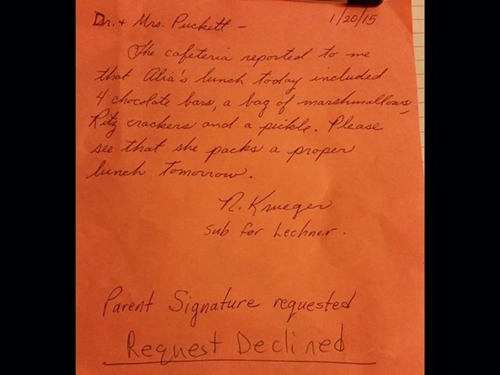 Dr. + Mrs. Puckett – 1/20/15
The cafeteria reported to me
that Alia's lunch today included
4 chocolate bars, a bag of marshmallows,
Ritz crackers and a pickle. Please
see that she packs a proper
lunch tomorrow.
N. Krueger
Sub for Lechner.
Parent Signature requested
Request Declined